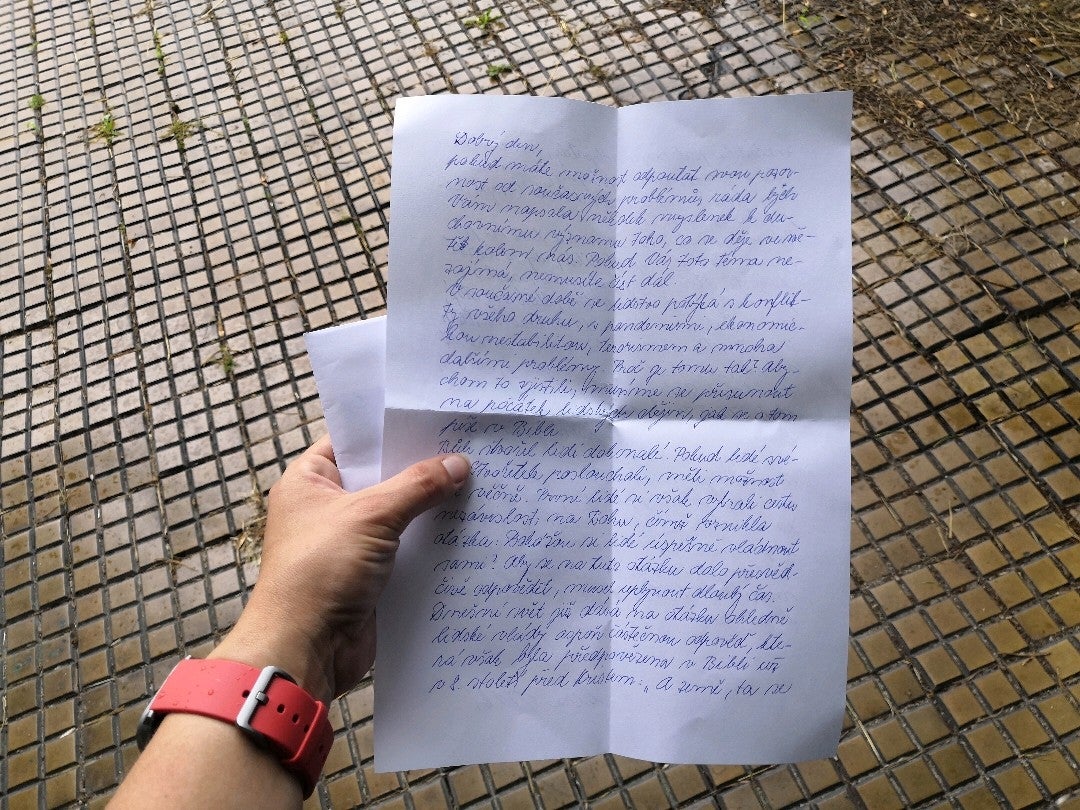 Dobrý den,
pokud máte možnost odpoutat svou pozor-
nost od současných problémů, ráda bych
Vám napsala několik myšlenek k du-
chovnímu významu toho, co se děje ve svě-
tě kolem nás. Pokud Vás toto téma ne-
zajímá, nemusíte číst dál.
V současné době se lidstvo potýká s konflik-
ty všeho druhu, s pandemiemi, ekonomic-
kou nestabilitou, terorismem a mnoha
dalšími problémy. Proč je tomu tak? Aby-
chom to zjistili, musíme se přesunout
na počátek lidských dějin, jak se o tom
píše v Bibli.
Bůh stvořil lidi dokonalé. Pokud lidé své-
Stvořitele poslouchali, měli možnost
žít věčně. První lidé si však vybrali cestu
nezávislosti na Bohu, čímž vznikla
otázka: Dokážou si lidé úspěšně vládnout
sami? Aby se na tuto otázku dalo přesvěd-
čivě odpovědět, musel uplynout dlouhý čas.
Dnešní svět již dává na otázku ohledně
lidské vlády aspoň částečnou odpověď, kte-
rá však byla předpovězena v Bibli už
v 8. století před Kristem: „A země, ta se